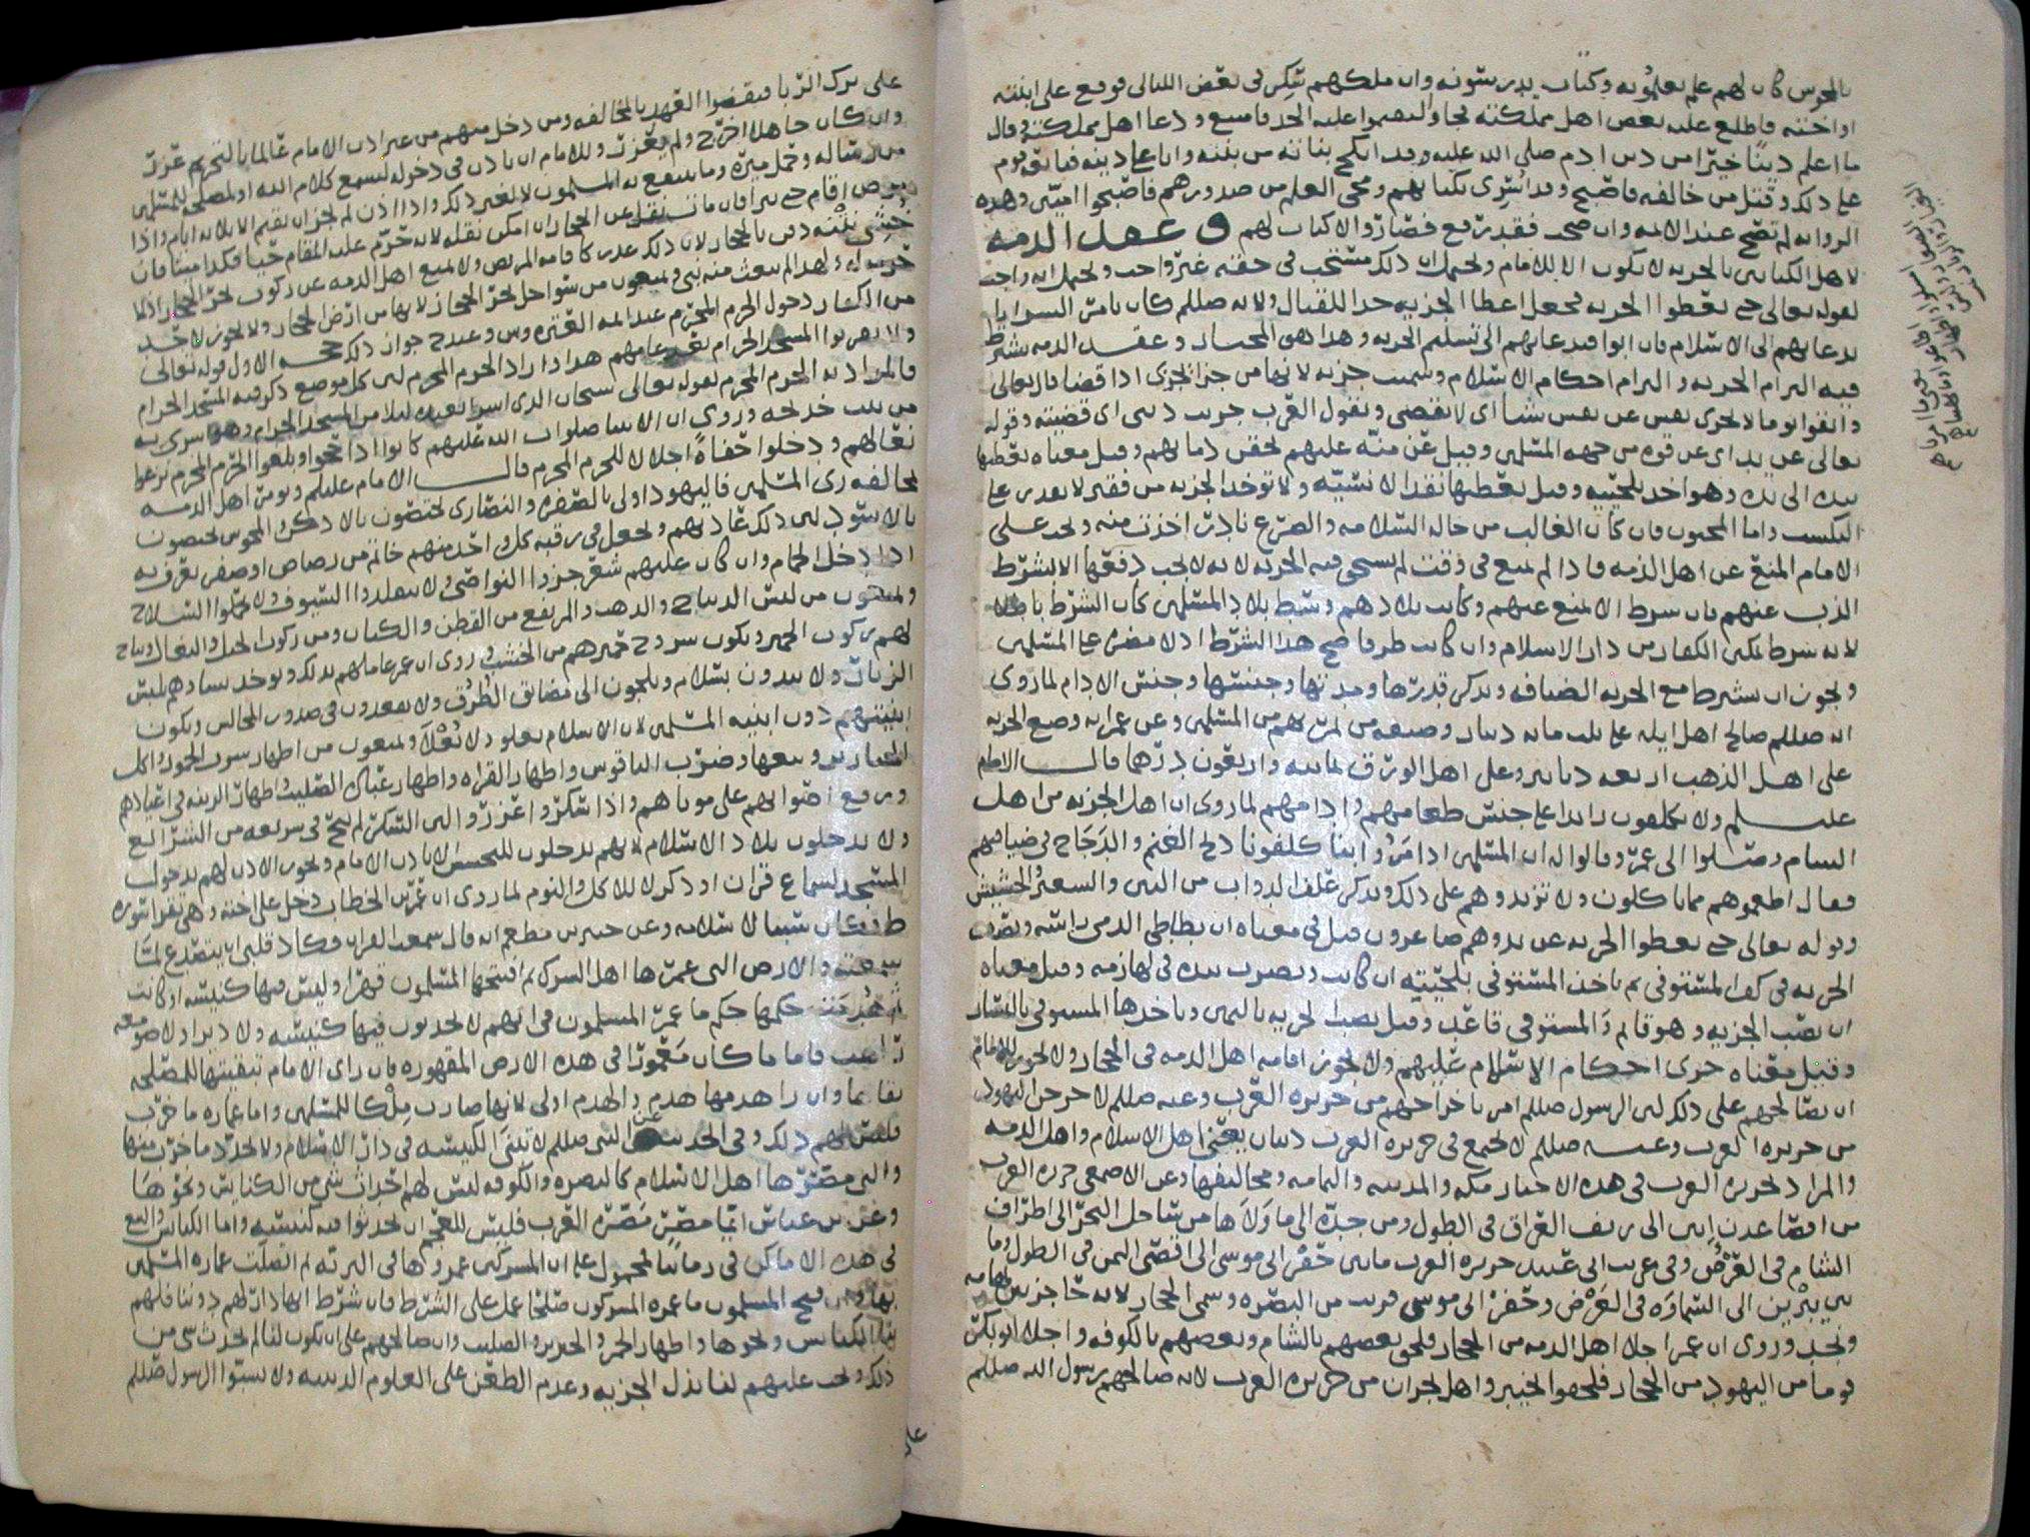 بالمجوس كان لهم علم يعلمونه وكتاب يدرسونه وان ملكهم سكر في بعض الليالي فوقع على ابنته
او اخته فاطلع عليه بعض اهل مملكته فجاوا ليقيموا عليه الحد فامتنع ودعا اهل مملكته وقال
ما اعلم دينا خيرا من دين ادم صلى الله عليه وقد انكح بناته من بنيه وانا على دينه فبايعه قوم
على ذلك وقتل من خالفه فاصبح وقد اسري بكتابهم ومحي العلم من صدورهم فاصبحوا اميين وهذه
الرواية لم تصح عند الائمة وان صحت فقد رفع فصاروا لا كتاب لهم وعقد الذمه
لاهل الكتابين بالجزيه لا يكون الا للامام ويحتمل ان ذلك مستحب في حقه غير واجب ويحتمل انه واجب
لقوله تعالى حتى يعطوا الجزيه فجعل اعطا الجزيه حدا للقتال ولانه صللم كان يامر السرايا
بدعايهم الى الاسلام فان ابوا فدعايهم الى تسليم الجزيه وهذا هو المختار وعقد الذمه يشترط
فيه التزام الجزيه والتزام احكام الاسلام وسميت جزيه لانها من جزا يجزي اذا قضا قال تعالى
واتقوا يوما لا تجزي نفس عن نفس شيا اي لا تقضي وتقول العرب جزيت ديني اي قضيته وقوله
تعالى عن يد اي عن قوه من جهه المسلمين وقيل عن منه عليهم لحقن دمايهم وقيل معناه يعطيها
بيده الى يده وهو اخذ بلحيته وقيل يعطيها نقدا لا نسيه ولا توخذ الجزيه من فقير لا يقدر على
التكسب واما المجنون فان كان الغالب من حاله السلامه والصرع نادر اخذت منه ويجب على
الامام المنع عن اهل الذمه فاذا لم يمنع في وقت لم يستحق فيه الجزيه لانه لا يجب دفعها الا بشرط
الذب عنهم فان شرط الا يمنع عنهم وكانت بلادهم وسط بلاد المسلمين كان الشرط باطلا
لانه شرط تمكين الكفار من دار الاسلام وان كانت طرفا صح هذا الشرط اذ لا مضره على المسلمين
ويجوز ان يشترط مع الجزيه الضيافه ويذكر قدرها ومدتها وجنسها وجنس الادام لما روي
انه صللم صالح اهل ايله على ثلث مايه دينار وضيفه من لمر بهم من المسلمين وعن عمر انه وضع الجزيه
على اهل الذهب اربعه دنانير وعلى اهل الورق ثمانيه واربعون درهما قال الامام
عليلم ولا يكلفون زايدا على جنس طعامهم وادامهم لما روي ان اهل الجزيه من اهل
الشام وصلوا الى عمر وقالوا له ان المسلمين اذا مروا بنا كلفونا ذبح الغنم والدجاج في ضيافتهم
فقال اطعموهم مما تاكلون ولا تزيدوهم على ذلك ويذكر علف الدواب من التبن والشعير والحشيش
وقوله تعالى حتى يعطوا الجزيه عن يد وهم صاغرون قيل في معناه ان يطاطي الذمي راسه ويصب
الجزيه في كف المستوفي ثم ياخذ المستوفي بلحيته ان كانت ويضرب بيده في لهازمه وقيل معناه
ان يصب الجزيه وهو قايم والمستوفي قاعد وقيل يصب الجزيه باليمين وياخذها المستوفي بالشمال
وقيل معناه جري احكام الاسلام عليهم ولا تجوز اقامه اهل الذمه في الحجاز ولا يجوز للامام
ان يصالحهم على ذلك لان الرسول صللم امر باخراجهم من جزيره العرب وعنه صللم لاخرجن اليهود
من جزيره العرب وعنه صللم لا يجتمع في جزيره العرب دينان يعني اهل الاسلام واهل الذمه
والمراد بجزيره العرب في هذه الاخبار مكه والمدينه واليمامه ومخاليفها وعن الاصمعي جزيره العرب
من اقصا عدن ابين الى ريف العراق في الطول ومن جده الى ما والاها من ساحل البحر الى اطراف
الشام في العرض وفي غريب ابي عبيد جزيره العرب ما بين حفر ابي موسى الى اقصى اليمن في الطول وما
بين يبرين الى السماوه في العرض وحفر ابي موسى قريب من البصره وسمي الحجاز لانه حاجز بين تهامه
ونجد وروي ان عمر اجلا اهل الذمه من الحجاز فلحق بعضهم بالشام وبعضهم بالكوفه واجلا ابو بكر
قوما من اليهود من الحجاز فلحقوا بخيبر واهل نجران من جزيره العرب لانه صالحهم رسول الله صللم
على ترك الربا فنقضوا العهد بالمخالفه ومن دخل منهم من غير اذن الامام عالما بالتحريم عزر
وان كان جاهلا اخرج ولم يعزر وللامام ان ياذن في دخوله لسمع كلام الله او لمصلحه للمسلمين
من رساله وحمل ميره وما ينتفع به المسلمون لا لغير ذلك واذا اذن لم يجز ان يقيم الا ثلاثه ايام واذا
مرض اقام حتى يبرا فان مات نقل عن الحجاز ان امكن نقله لانه حرم عليه المقام حيا فكذا ميتا فان
خشي نتنه دفن بالحجاز لان ذلك عذر كاقامه المريض ولا يمنع اهل الذمه عن ركوب بحر الحجاز اذ لا
حرمه له ولهذا لم يبعث منه نبي ويمنعون من سواحل بحر الحجاز لانها من ارض الحجاز ولا يجوز لاحد
من الكفار دخول الحرم المحرم عند ايمه العتره وش وعند ح جواز ذلك حجه الاول قوله تعالى
ولا يقربوا المسجد الحرام بعد عامهم هذا اراد الحرم المحرم لان كل موضع ذكر فيه المسجد الحرام
فالمراد به الحرم المحرم لقوله تعالى سبحان الذي اسرى بعبده ليلا من المسجد الحرام وهو اسري به
من بيت خديجه وروي ان الانبيا صلوات الله عليهم كانوا اذا حجوا وبلغوا الحرم المحرم نزعوا
نعالهم ودخلوا حفاة اجلالا للحرم المحرم قال الامام عليلم ويومر اهل الذمه
بمخالفه زي المسلمين فاليهود اولى بالصفره والنصارى يختصون بالادكن والمجوس يختصون
بالاسود لان ذلك عادتهم ويجعل في رقبه كل واحد منهم خاتم من رصاص او صفر يعرف به
اذا دخل الحمام وان كان عليهم شعر جزوا النواصي ولا يتقلدوا السيوف ولا يحملوا السلاح
ويمنعون من لبس الديباج والذهب والمرتفع من القطن والكتان ومن ركوب الخيل والبغال ويباح
لهم ركوب الحمير وتكون سروج حميرهم من الخشب وروي ان عمر عاملهم بذلك ويوخذ نساوهم بلبس
الزنار ولا يبدون بسلام ويلجون الى مضايق الطرق ولا يقعدون في صدور المجالس ويكون
ابنيتهم دون ابنيه المسلمين لان الاسلام يعلو ولا يعلا ويمنعون من اظهار شرب الخمور واكل
الخنازير وبيعها وضرب الناقوس واظهار القراه واظهار عباده الصليب واظهار الزينه في اعيادهم
ورفع اصواتهم على موتاهم واذا سكروا عزروا لان السكر لم يبح في شريعه من الشرايع
ولا يدخلون بلاد الاسلام لانهم يدخلون للتجسس الا باذن الامام ويجوز الاذن لهم بدخول
المسجد لسماع قران او ذكر لا للاكل والنوم لما روي ان عمر بن الخطاب دخل على اخته وهي تقرا سوره
طه فكان سببا لاسلامه وعن جبير بن مطعم انه قال سمعت القران فكاد قلبي ان يتصدع لما
سمعته والارض التي عمرها اهل الشرك ثم افتتحها المسلمون قهرا وليس فيها كنيسه او كانت
ثم هدمت حكمها حكم ما عمر المسلمون في انهم لا يحدثون فيها كنيسه ولا ديرا ولا صومعه
راهب فاما ما كان معمورا في هذه الارض المقهوره فان راى الامام تبقيتها للمصلحه
بقاها وان را هدمها هدم والهدم اولى لانها صارت ملكا للمسلمين واما عماره ما خرب
فليس لهم ذلك وفي الحديث عن النبي صللم لا تبنى الكنيسه في دار الاسلام ولا يجدد ما خرب منها
والتي مصرها اهل الاسلام كالبصره والكوفه ليس لهم احداث شي من الكنايس ونحوها
وعن بن عباس ايما مصر مصره العرب فليس للعجم ان يحدثوا فيه كنيسه واما الكنايس والبيع
في هذه الاماكن في زماننا فمحمول على ان المشركين عمروها في البريه ثم اتصلت عماره المسلمين
بها وان فتح المسلمون ما عمره المشركون صلحا عمل على الشرط فان شرط انها دار لهم دوننا فلهم
بنا الكنايس ونحوها واظهار الخمر والخنزير والصليب وان صالحهم على ان تكون لنا لم يحدث شي من
ذلك ويجب عليهم لنا بذل الجزيه وعدم الطعن على العلوم الدينيه ولا يسبوا الرسول صللم
على